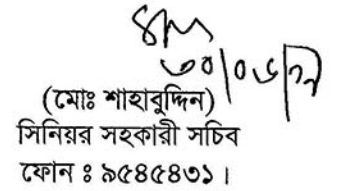 ৩০/০৬/১১
(মোঃ শাহাবুদ্দিন)
সিনিয়র সহকারী সচিব
ফোন ঃ ৯৫৪৫৪৩১ ।